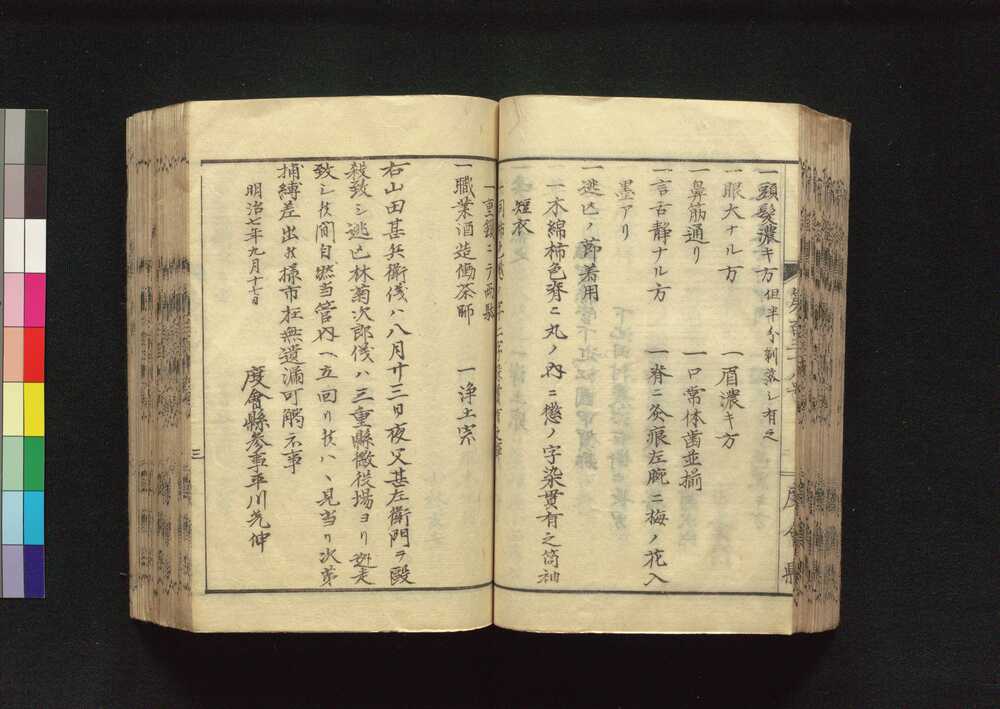 一頭髪濃キ方 但半分剃落シ有之
一眼大ナル方 一眉濃キ方
一鼻筋通り 一口常体歯並揃
一言舌静ナル方 一脊ニ灸痕左腕ニ梅ノ花入
墨アリ
一逃亡ノ節着用
一木綿柿色脊ニ丸ノ内ニ懲ノ字染貫有之筒袖
短衣
一職業酒造傭茶師 一浄土宗
右山田甚兵衛儀ハ八月廿三日夜父甚左衛門ヲ殴
殺致シ逃亡林菊次郎儀ハ三重縣徴役場ヨリ逃走
致シ候間自然当管内ヘ立回り候ハヽ見当り次第
捕縛差出候様市在無遺漏可觸示事
明治七年九月十七日
度會縣参事平川光伸
三
度會縣